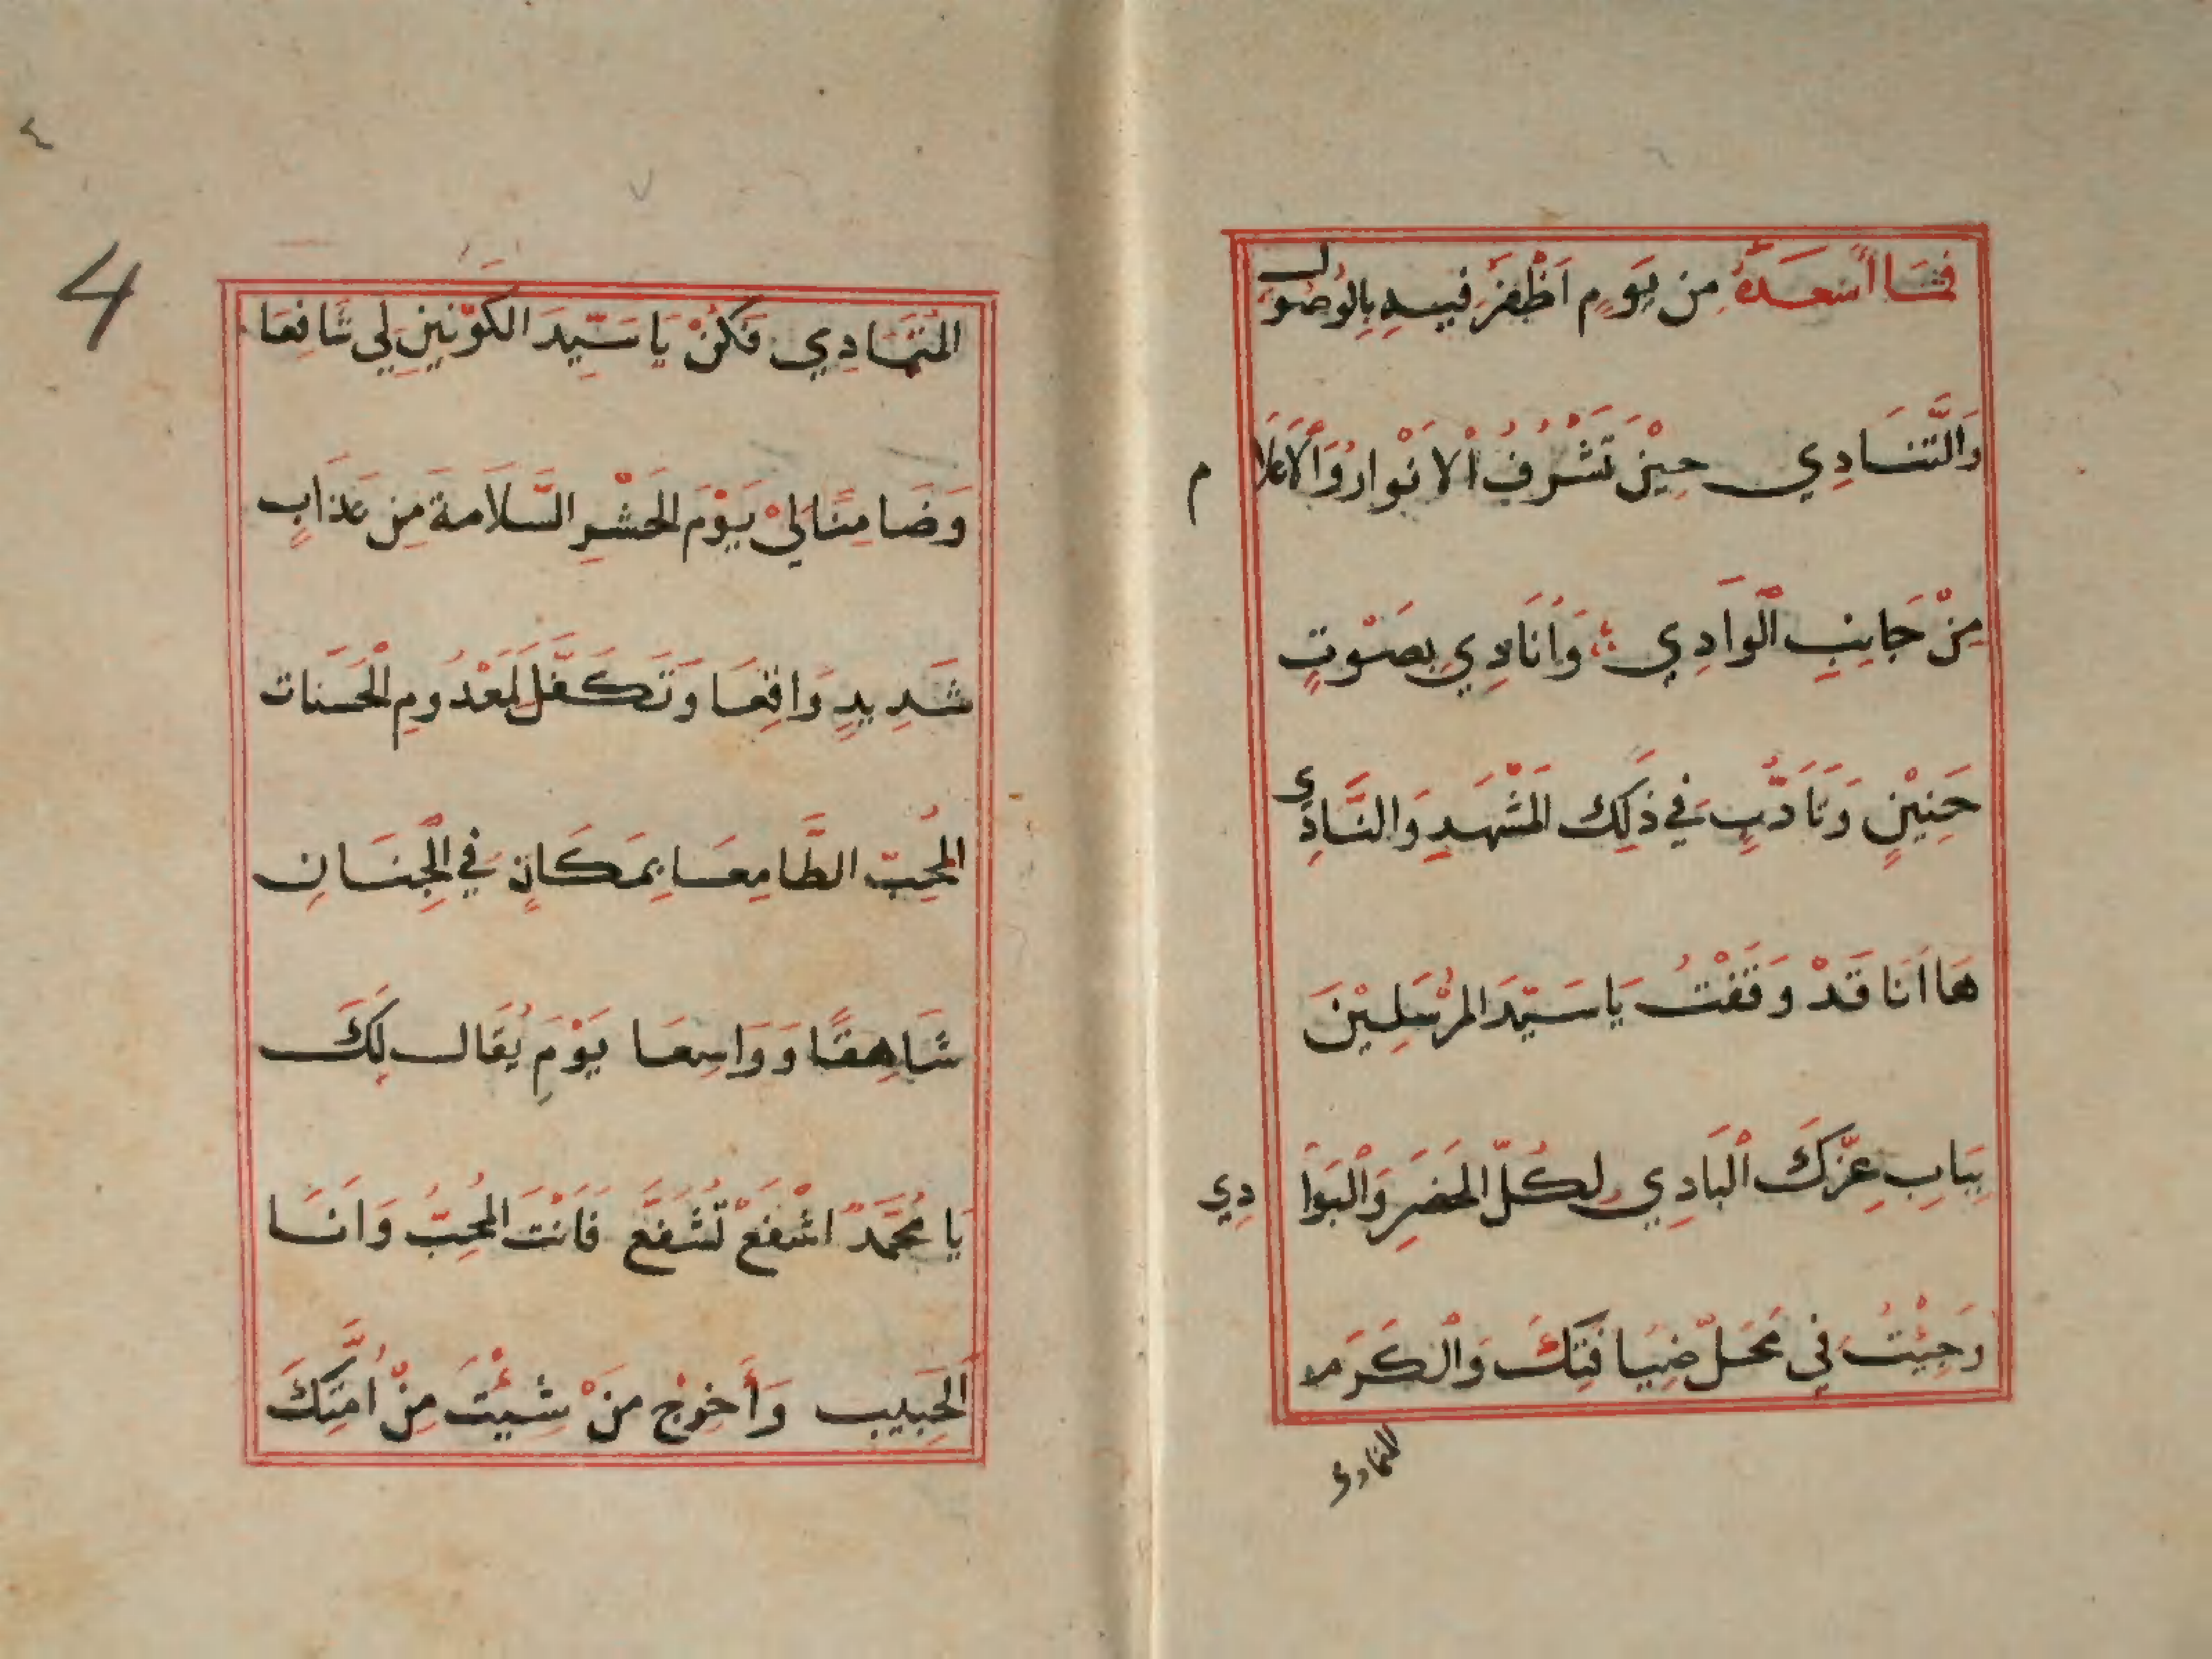 فَمَا اَسْعَدَهُ مِن يَوٍم اَظْفَرُ فيهِ بِالوُصُول
وَالتَّنَادِي حِيْنَ تَشْرُفُ اْلانْوارُ وَاْلاَعْلَام
مِنْ جَانِبِ الْوَادِي وَاُنَادِي بِصَوْتٍ
حَنِيْنٍ وَتَادُّبٍ فِي ذَلِكَ الْمَشْهَدِ وَالنَّادِي
هَا اَنَا قَدْ وَقَفْتُ يَا سَيِّدَ المُرْسَلِيْنَ
بِبَابِ عِزِّكَ الْبَادِي لِكُلِّ الحَضَرِ وَالْبَوَادِي
وَجِئْتُ فِي مَحَلِّ ضِيَافَتِكَ وَالْكَرَم
المتمادي
4
٤
٧
المُتَمَادِي فَكُنْ يَا سَيِّدَ الكَوْنَيْنِ لِي شَافِعَا
وَضَامِنًا لِيْ يَوْمَ الحَشْرِ السَّلَامةَ مِن عَذَابٍ
شَدِيدٍ وَاقِعَا وَتَكَفَّلَ لِمَعْدُومِ الْحَسَنات
المُحِبِّ الطَّامِعَا بِمَكَانٍ فِي الْجِنَانِ
شَاهِقًا وَوَاسِعَا يَوْمَ يُقَال لَكَ
يَا مُحَمَّدُ اشْفَعْ تُشَفَّعْ فَاَنْتَ المُحِبُّ وَاَنَا
الحَبِيب وَأَخرِجْ مَنْ شِئْتَ مِنْ اُمَّتِكَ